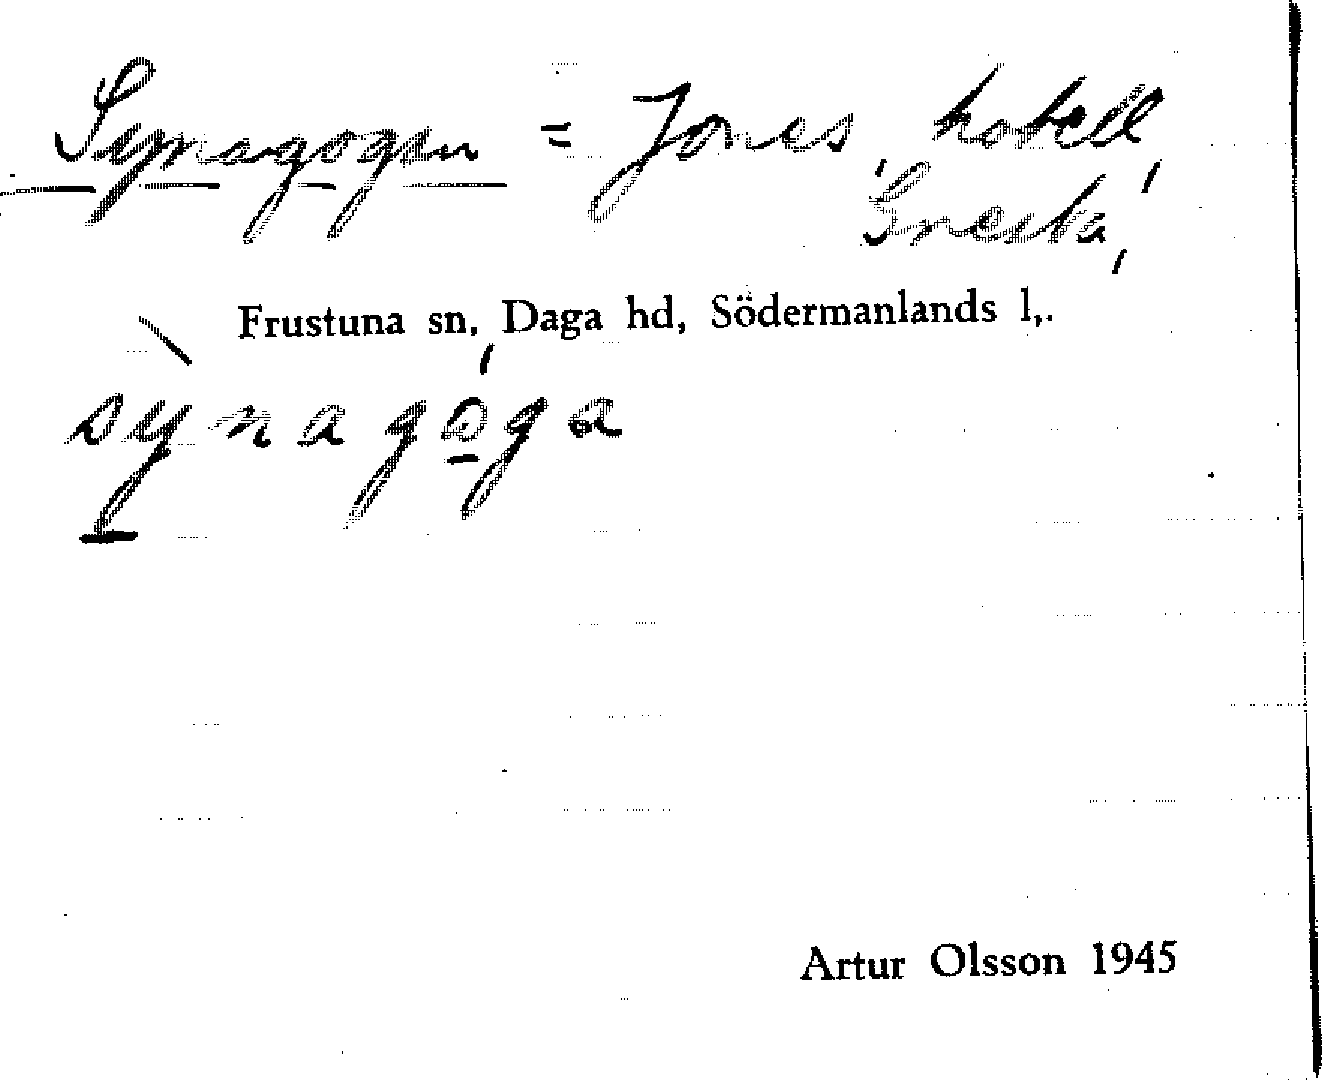 Synagogen = Jones, hotell,
Gnesta,
Frustuna sn, Daga hd, Södermanlands l,.
synagoga
Artur Olsson 1945